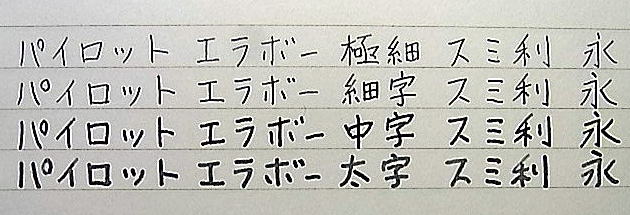 パイロット エラボー 極細 スミ利 永
パイロット エラボー 細字 スミ利 永
パイロット エラボー 中字 スミ利 永
パイロット エラボー 太字 スミ利 永